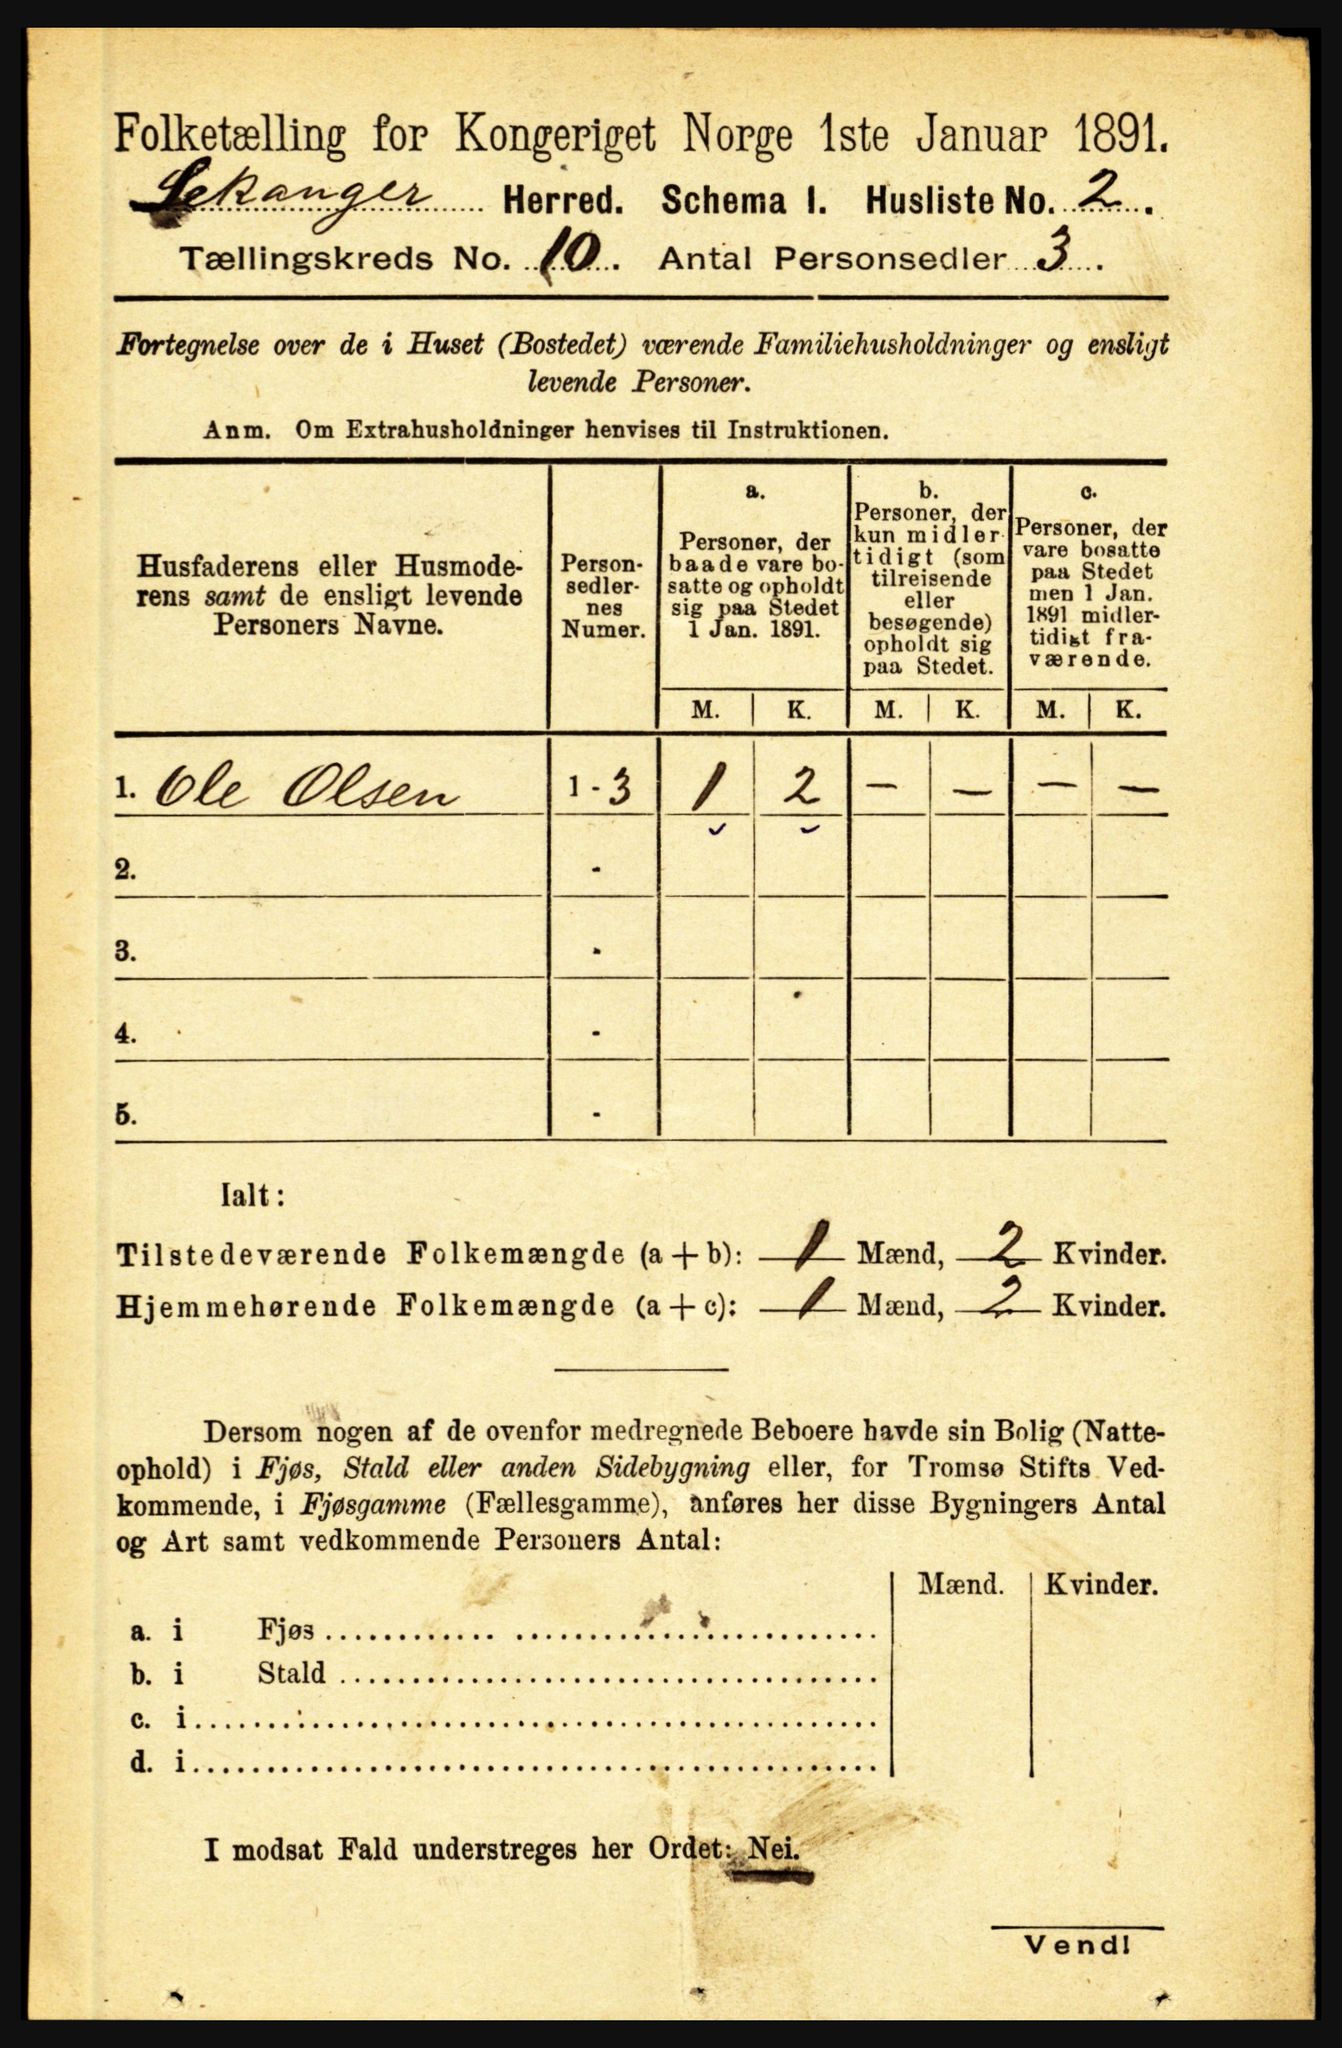 Folketælling for Kongeriget Norge 1ste Januar 1891.
Lekanger Herred. Schema 1. Husliste No. 2.
Tællingskreds No. 10. Antal Personsedler 3.
Fortegnelse over de i Huset (Bostedet) værende Familiehusholdninger og ensligt
levende Personer.
Anm. Om Extrahusholdninger henvises til Instruktionen.
Husfaderens eller Husmode-
rens samt de ensligt levende
Personers Navne.
Person-
sedler-
nes
Numer.
a.
Personer, der
baade vare bo-
satte og opholdt
sig paa Stedet
1 Jan. 1891.
b.
Personer, der
kun midler-
tidigt (som
tilreisende
eller
besøgende)
opholdt sig
paa Stedet.
c.
Personer, der
vare bosatte
paa Stedet
men 1 Jan.
1891 midler-
tidigt fra-
værende.
M. K. M. K. M. K.
1. Ole Olsen 1 - 3 1 2 — — — —
2. -
3. -
4. -
5. -
Ialt:
Tilstedeværende Folkemængde (a + b): 1 Mænd, 2 Kvinder.
Hjemmehørende Folkemængde (a + c): 1 Mænd, 2 Kvinder.
Dersom nogen af de ovenfor medregnede Beboere havde sin Bolig (Natte-
ophold) i Fjøs, Stald eller anden Sidebygning eller, for Tromsø Stifts Ved-
kommende, i Fjøsgamme (Fællesgamme), anføres her disse Bygningers Antal
og Art samt vedkommende Personers Antal:
Mænd. Kvinder.
a. i Fjøs
b. i Stald
c. i
d. i
I modsat Fald understreges her Ordet: Nei.
Vend!